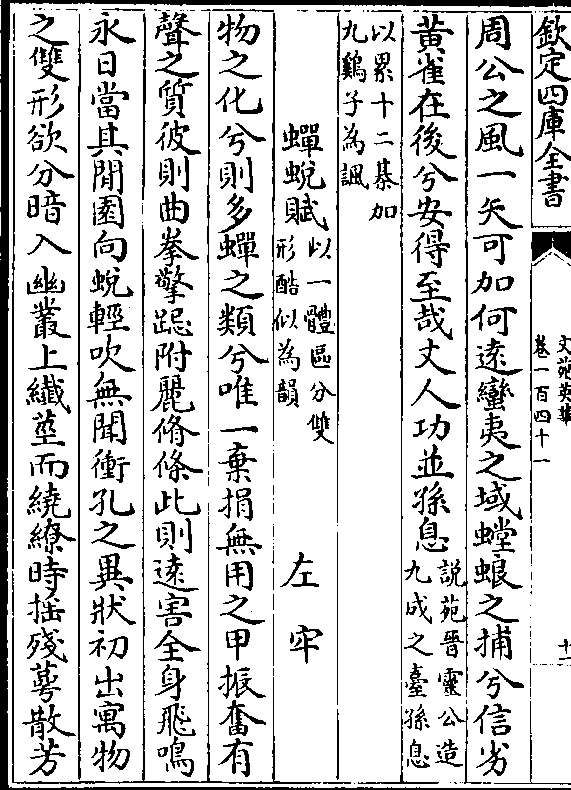 欽定四庫全書
文苑英華
卷一百四十一
十一
周公之風一矢可加何遠蠻夷之域螳蜋之捕兮信劣
黃雀在後兮安得至哉丈人功並孫息
說苑晉靈公造
九成之臺孫息
以累十二棊加
九鷄子為諷
蟬蛻賦
以一體區分雙
形酷似為韻
左牢
物之化兮則多蟬之類兮唯一棄捐無用之甲振奮有
聲之質彼則曲拳擎跽附麗脩條此則遠害全身飛鳴
永日當其閒園向蛻輕吹無聞衝孔之異狀初出寓物
之雙形欲分暗入幽叢上纎莖而繞繚時揺殘蕚散芳